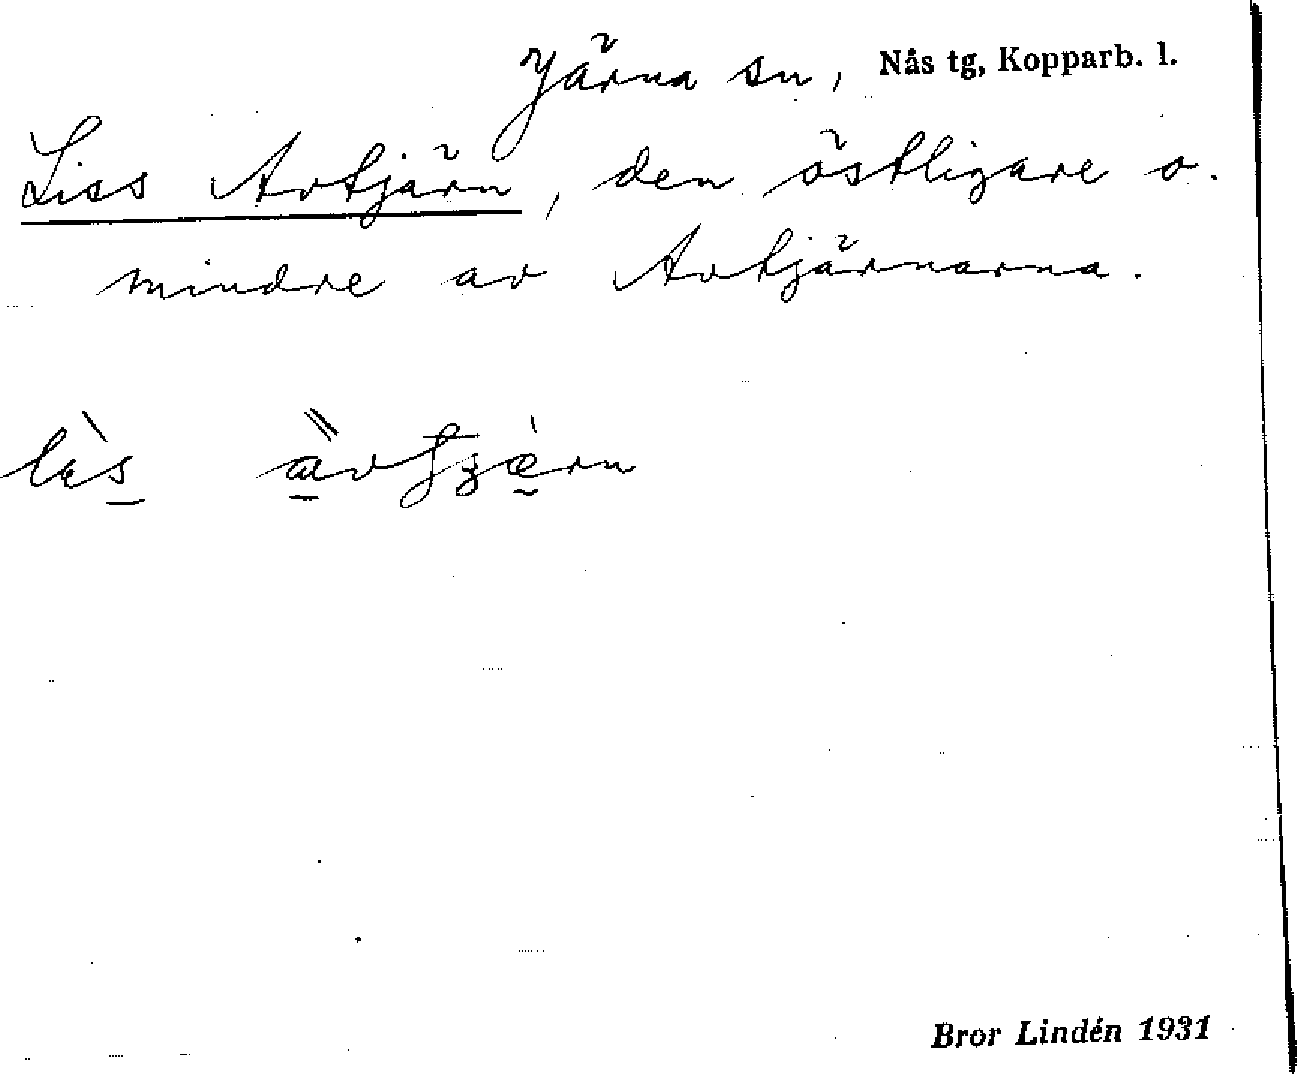 Järna sn, Nås tg, Kopparb. l.
Liss Avtjärn, den östligare o.
mindre av Avtjärnarna.
Bror Lindén 1931